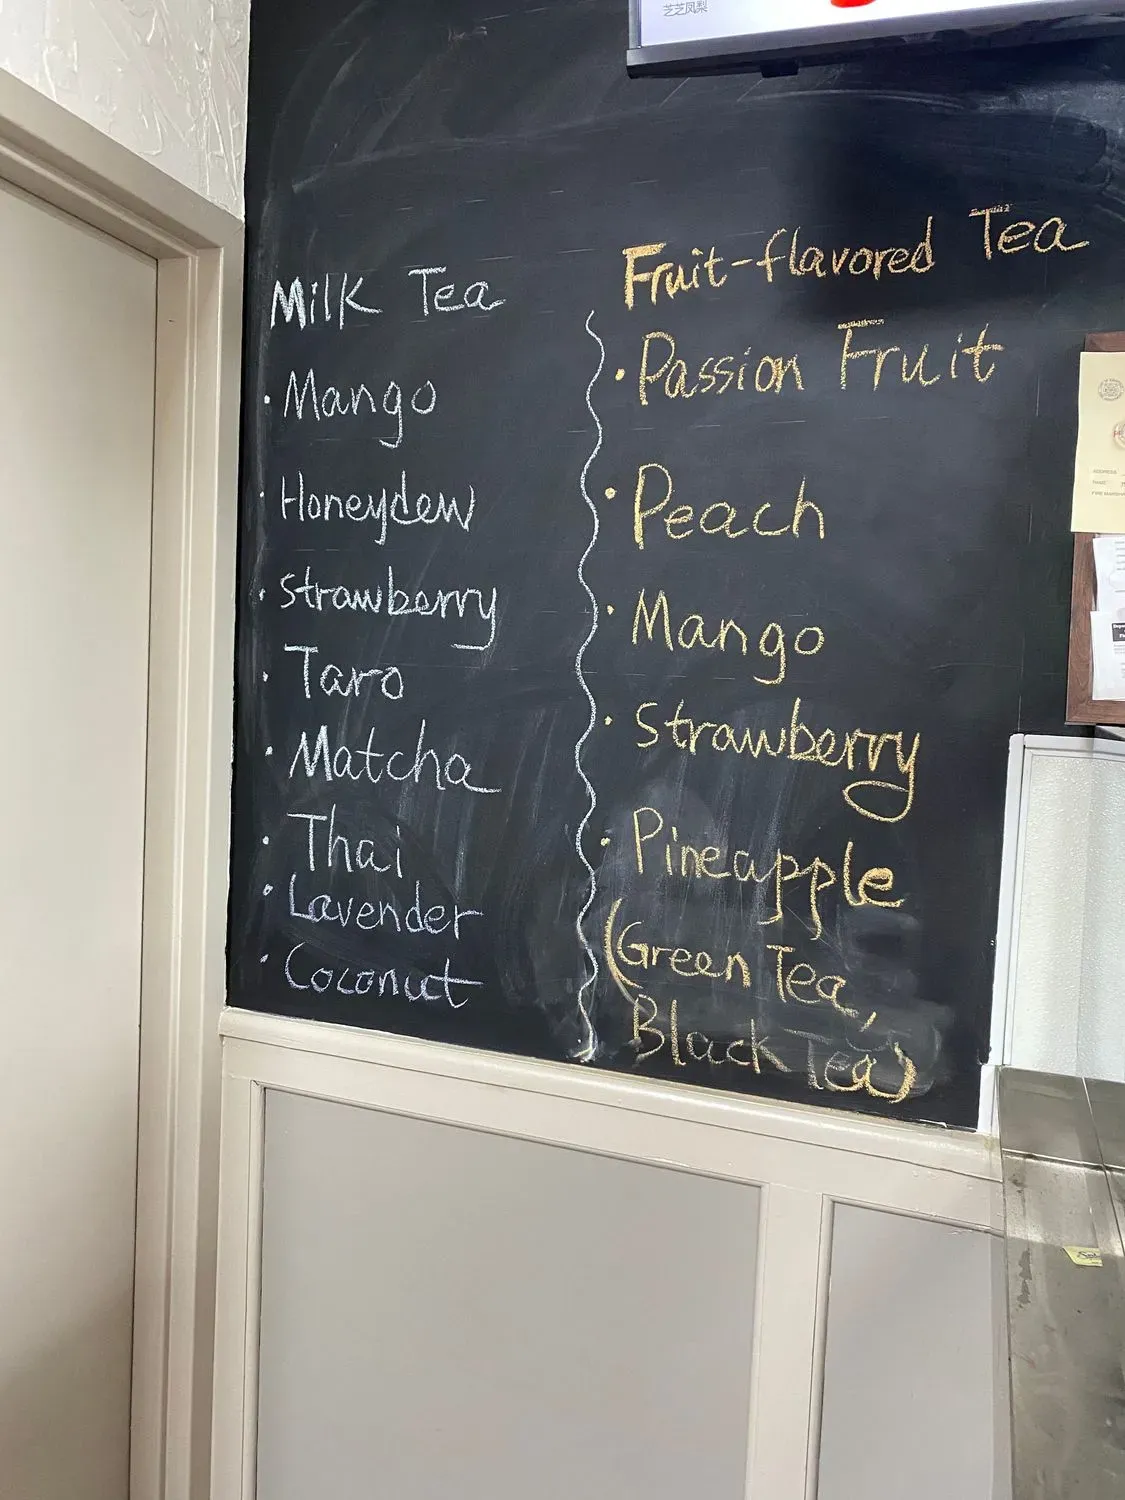 芝芝凤梨
Milk Tea
· Mango
· Honeydew
· strawberry
· Taro
· Matcha
· Thai
· Lavender
· Coconut
Fruit-flavored Tea
· Passion Fruit
· Peach
· Mango
· strawberry
· Pineapple
(Green Tea,
Black Tea)
ADDRESS
NAME